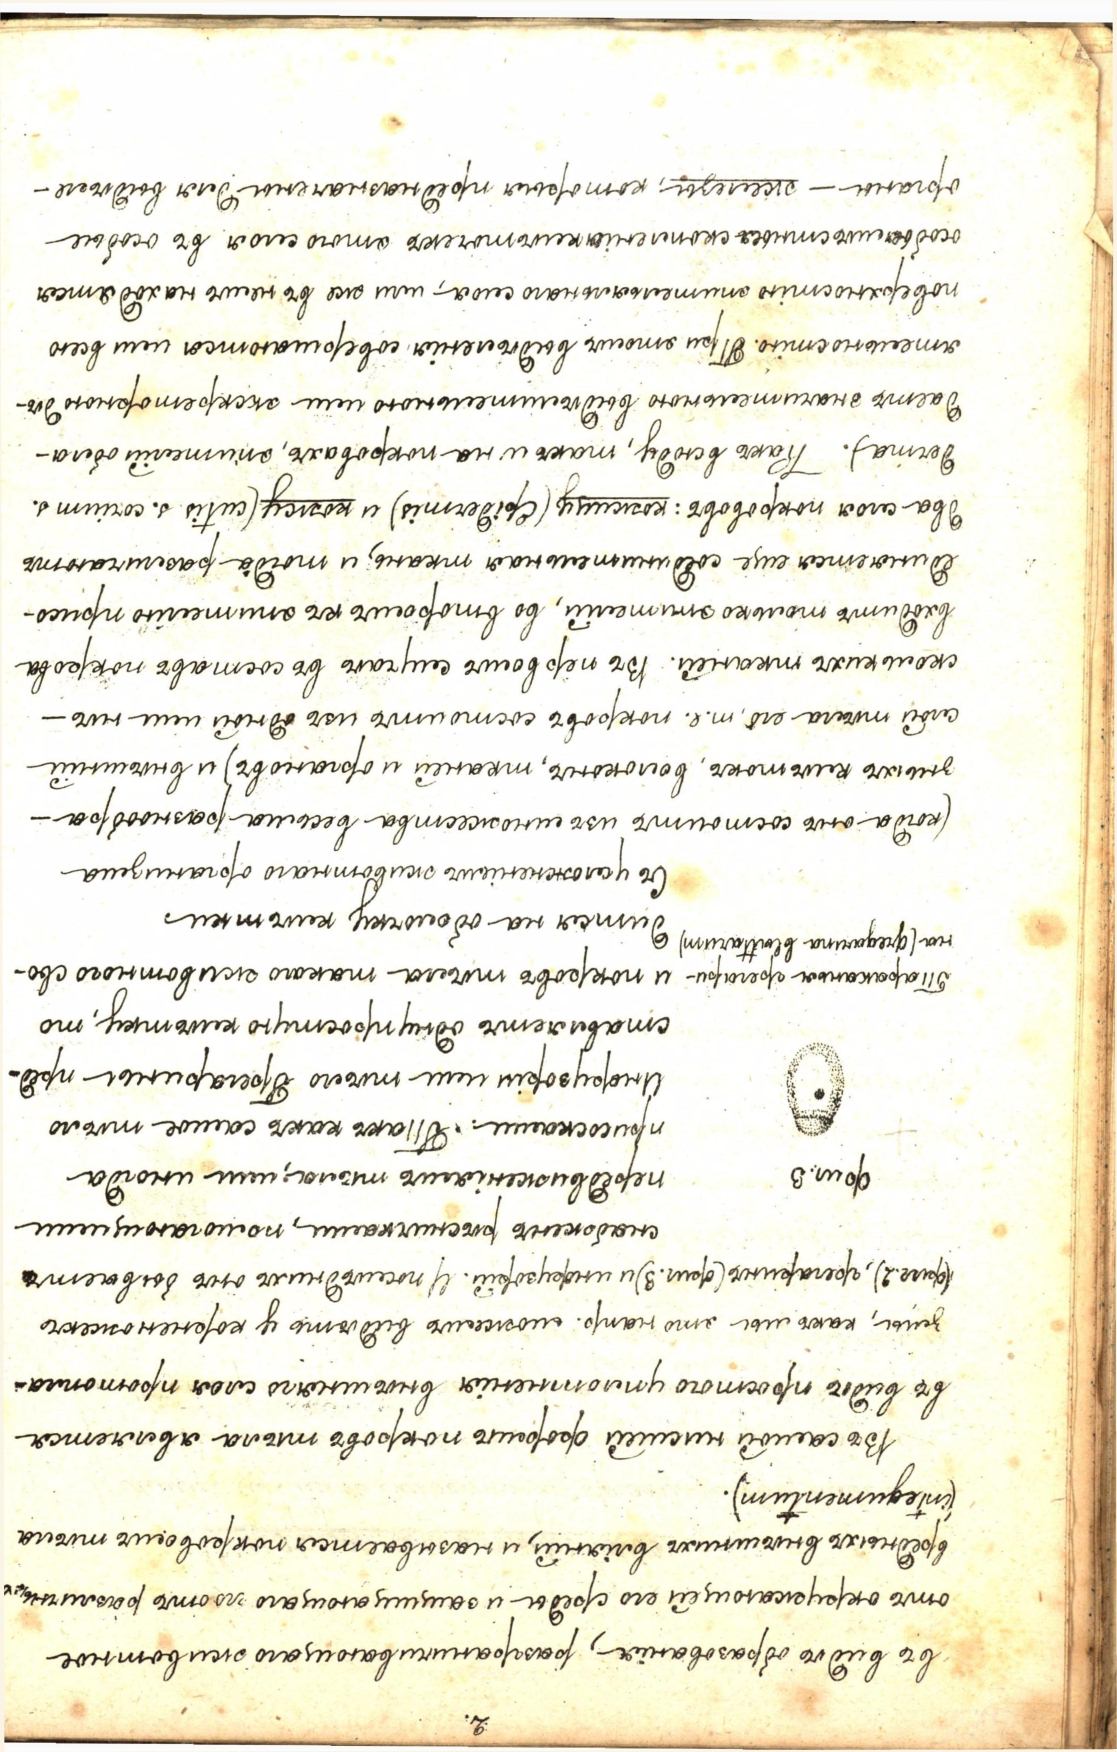 2.
въ видѣ образованія, разграничивающаго животное
отъ окружающей его среды и защищающаго его отъ различныхъ
вредныхъ внѣшнихъ вліяній, и называется покровомъ тѣла
(integumentum).
Въ самой низшей формѣ покровъ тѣла является
въ видѣ простого уплотненія внѣшняго слоя протоплаз-
змы, какъ мы это напр. можемъ видѣть у корненожекъ
(фиг. 2), грегаринъ (фиг. 3) и инфузорій. У послѣднихъ онъ бываетъ
снабженъ рѣсничками, помогающими
передвиженіямъ тѣла, или иногда
присосками. Такъ какъ самое тѣло
Инфузоріи или тѣло Грегарины пред-
ставляетъ одну простую клѣтку, то
и покровъ тѣла такого животного сво-
дится на оболочку клѣтки.
фиг. 3
Тараканья грегари-
на (gregarina blattarum)
Съ усложненіемъ животнаго организма
(когда онъ состоитъ изъ множества весьма разнообра-
зныхъ клѣтокъ, волоконъ, тканей и органовъ) и внѣшній
слой тѣла его, т.е. покровъ состоитъ изъ одной или нѣ-
сколькихъ тканей. Въ первомъ случаѣ въ составъ покрова
входитъ только эпителій, во второмъ къ эпителію присо-
единяется еще соединительная ткань, и тогда различаютъ
два слоя покрововъ: кожицу (Epidermis) и кожу (cutis s. corium s.
derma). Какъ всюду, такъ и на покровахъ, эпителій обла-
даетъ значительною выдѣлительною или экскреторною дѣ-
ятельностію. При этомъ выдѣленія совершаются или всею
поверхностію эпителіальнаго слоя, или же въ немъ находятся
особыя мѣстныя скопленія клѣточекъ этого слоя въ особые
органы — железы, которыя предназначены для выдѣле-